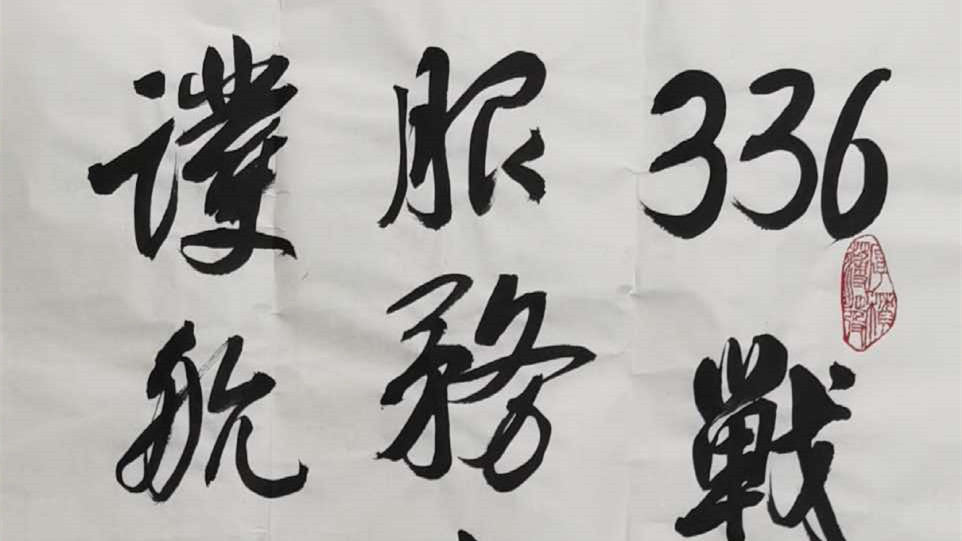 336戰
服務
護航